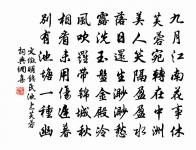 九月江南花事休
芙蓉宛轉在中洲
美人笑隔盈盈水
落日還生渺渺愁
露洗玉盤金殿冷
風吹羅帶錦城秋
相看未用傷遲暮
別有池塘一種幽
文徵明錢氏池上芙蓉
詞典網